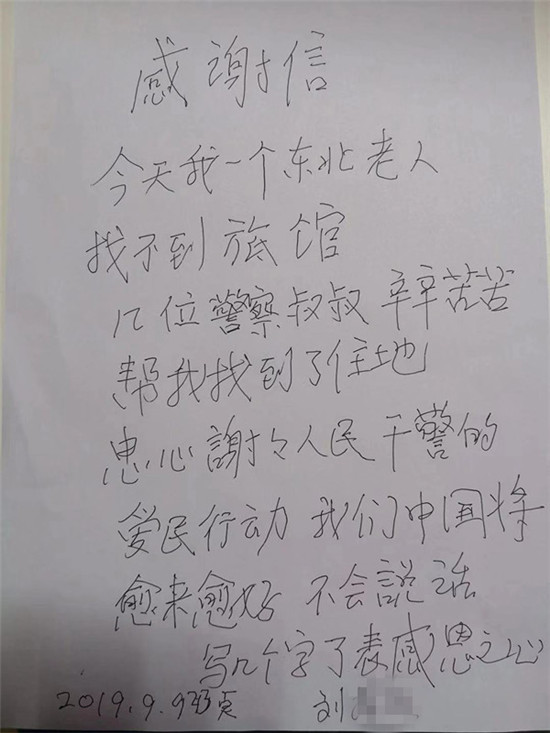 感谢信
今天我一个东北老人
找不到旅馆
几位警察叔叔 辛辛苦苦
帮我找到了住地
忠心謝々人民干警的
爱民行动 我们中国将
愈来愈好 不会説话
写几个字了表感恩之心
2019.9.9 刘